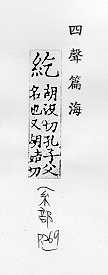 四聲篇海
紇
胡没切孔子父
名也又胡結切
(糸部
P269)